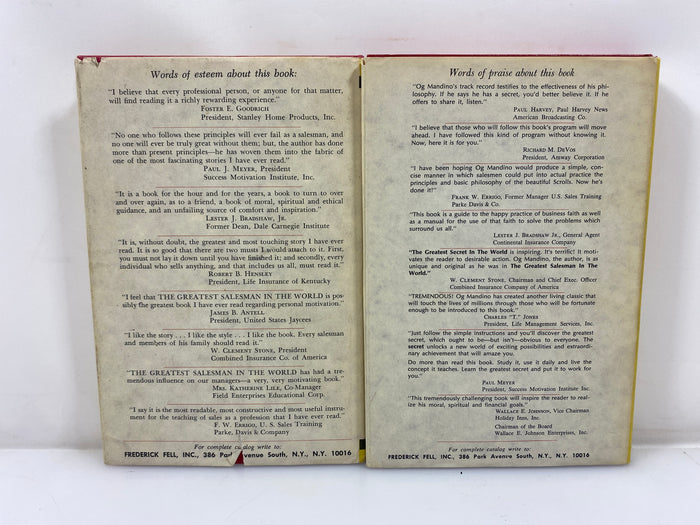 Words of esteem about this book:
"I believe that every professional person, or anyone for that matter,
will find reading it a richly rewarding experience."
FOSTER E. GOODRICH
President, Stanley Home Products, Inc.
"No one who follows these principles will ever fail as a salesman, and
no one will ever be truly great without them; but, the author has done
more than present principles—he has woven them into the fabric of
one of the most fascinating stories I have ever read."
PAUL J. MEYER, President
Success Motivation Institute, Inc.
"It is a book for the hour and for the years, a book to turn to over
and over again, as to a friend, a book of moral, spiritual and ethical
guidance, and an unfailing source of comfort and inspiration."
LESTER J. BRADSHAW, JR.
Former Dean, Dale Carnegie Institute
"It is, without doubt, the greatest and most touching story I have ever
read. It is so good that there are two musts I would attach to it. First,
you must not lay it down until you have finished it; and secondly, every
individual who sells anything, and that includes us all, must read it."
ROBERT B. HENSLEY
President, Life Insurance of Kentucky
"I feel that THE GREATEST SALESMAN IN THE WORLD is pos-
sibly the greatest book I have ever read regarding personal motivation."
JAMES B. ANTELL
President, United States Jaycees
"I like the story . . . I like the style . . . I like the book. Every salesman
and members of his family should read it."
W. CLEMENT STONE, President
Combined Insurance Co. of America
"THE GREATEST SALESMAN IN THE WORLD has had a tre-
mendous influence on our managers—a very, very motivating book."
MRS. KATHERINE LILE, Co-Manager
Field Enterprises Educational Corp.
"I say it is the most readable, most constructive and most useful instru-
ment for the teaching of sales as a profession that I have ever read."
F. W. ERRIGO, U. S. Sales Training
Parke, Davis & Company
For complete catalog write to:
FREDERICK FELL, INC., 386 Park Avenue South, N.Y., N.Y. 10016
Words of praise about this book
"Og Mandino's track record testifies to the effectiveness of his phi-
losophy. If he says he has a secret, you'd better believe it. If he
offers to share it, listen."
PAUL HARVEY, Paul Harvey News
American Broadcasting Co.
"I believe that those who will follow this book's program will move
ahead. I have followed this kind of program without knowing it.
Now, here it is for you."
RICHARD M. DEVOS
President, Amway Corporation
"I have been hoping Og Mandino would produce a simple, con-
cise manner in which salesmen could put into actual practice the
principles and basic philosophy of the beautiful Scrolls. Now he's
done it!"
FRANK W. ERRIGO, Former Manager U.S. Sales Training
Parke Davis & Co.
"This book is a guide to the happy practice of business faith as well
as a manual for the use of that faith to solve the problems which
surround us all."
LESTER J. BRADSHAW JR., General Agent
Continental Insurance Company
"The Greatest Secret In The World is inspiring. It's terrific! It moti-
vates the reader to desirable action. Og Mandino, the author, is as
unique and original as he was in The Greatest Salesman In The
World."
W. CLEMENT STONE, Chairman and Chief Exec. Officer
Combined Insurance Company of America
"TREMENDOUS! Og Mandino has created another living classic that
will touch the lives of millions through those who will be fortunate
enough to be introduced to this book."
CHARLES "T." JONES
President, Life Management Services, Inc.
"Just follow the simple instructions and you'll discover the greatest
secret, which ought to be—but isn't—obvious to everyone. The
secret unlocks a new world of exciting possibilities and extraordi-
nary achievement that will amaze you.
Do more than read this book. Study it, use it daily and live the
concept it teaches. Learn the greatest secret and put it to work for
you."
PAUL MEYER
President, Success Motivation Institute Inc.
"This tremendously challenging book will inspire the reader to real-
ize his moral, spiritual and financial goals."
WALLACE E. JOHNSON, Vice Chairman
Holiday Inns, Inc.
Chairman of the Board
Wallace E. Johnson Enterprises, Inc.
For complete catalog write to:
FREDERICK FELL, INC., 386 Park Avenue South, N.Y., N.Y. 10016